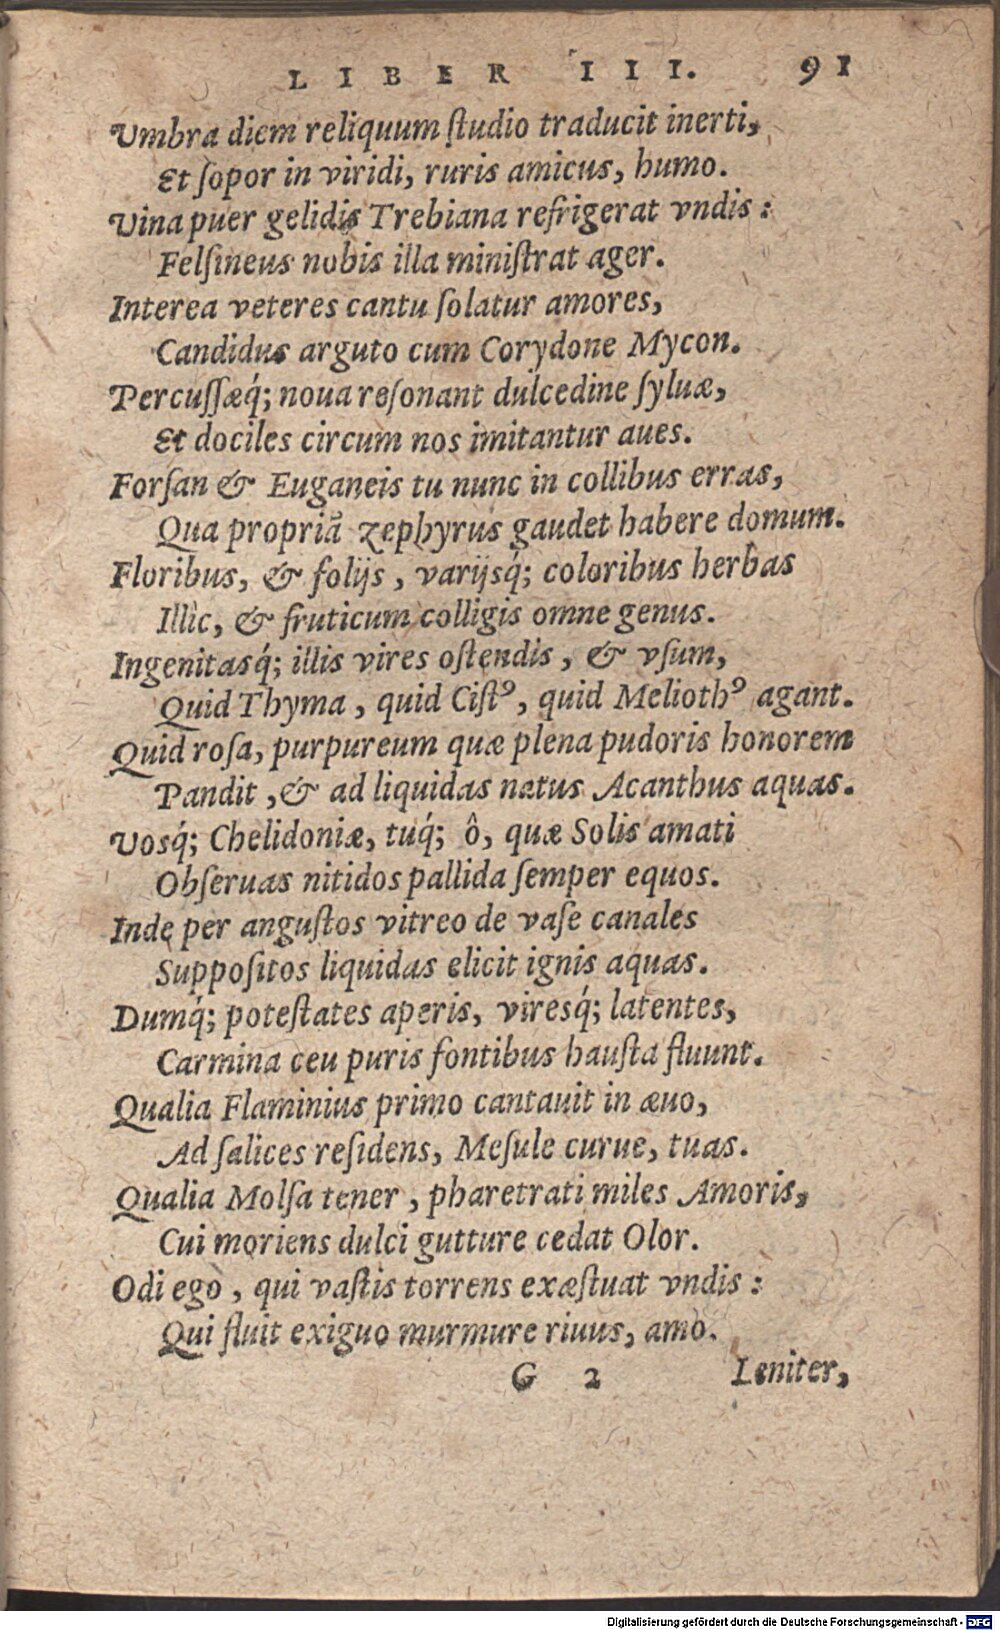 LIBER III. 91
Vmbra diem reliquum ſtudio traducit inerti,
Et ſopor in viridi, ruris amicus, humo.
Vina puer gelidis Trebiana refrigerat vndis:
Felſineus nobis illa miniſtrat ager.
Interea veteres cantu ſolatur amores,
Candidus arguto cum Corydone Mycon.
Percuſſæq́; noua reſonant dulcedine ſyluæ,
Et dociles circum nos imitantur aues.
Forſan & Euganeis tu nunc in collibus erras,
Qua propriā zephyrus gaudet habere domum.
Floribus, & folijs, varijsq́; coloribus herbas
Illìc, & fruticum colligis omne genus.
Ingenitasq́; illis vires oſtendis, & vſum,
Quid Thyma, quid Ciſtꝰ, quid Meliothꝰ agant.
Quid roſa, purpureum quæ plena pudoris honorem
Pandit, & ad liquidas natus Acanthus aquas.
Vosq́; Chelidoniæ, tuq́; ô, quæ Solis amati
Obſeruas nitidos pallida ſemper equos.
Inde per anguſtos vitreo de vaſe canales
Suppoſitos liquidas elicit ignis aquas.
Dumq́; poteſtates aperis, viresq́; latentes,
Carmina ceu puris fontibus hauſta fluunt.
Qualia Flaminius primo cantauit in æuo,
Ad ſalices reſidens, Meſule curue, tuas.
Qualia Molſa tener, pharetrati miles Amoris,
Cui moriens dulci gutture cedat Olor.
Odi ego, qui vaſtis torrens exæſtuat vndis:
Qui fluit exiguo murmure riuus, amo.
G 2 Leniter,
Digitalisierung gefördert durch die Deutsche Forschungsgemeinschaft - DFG